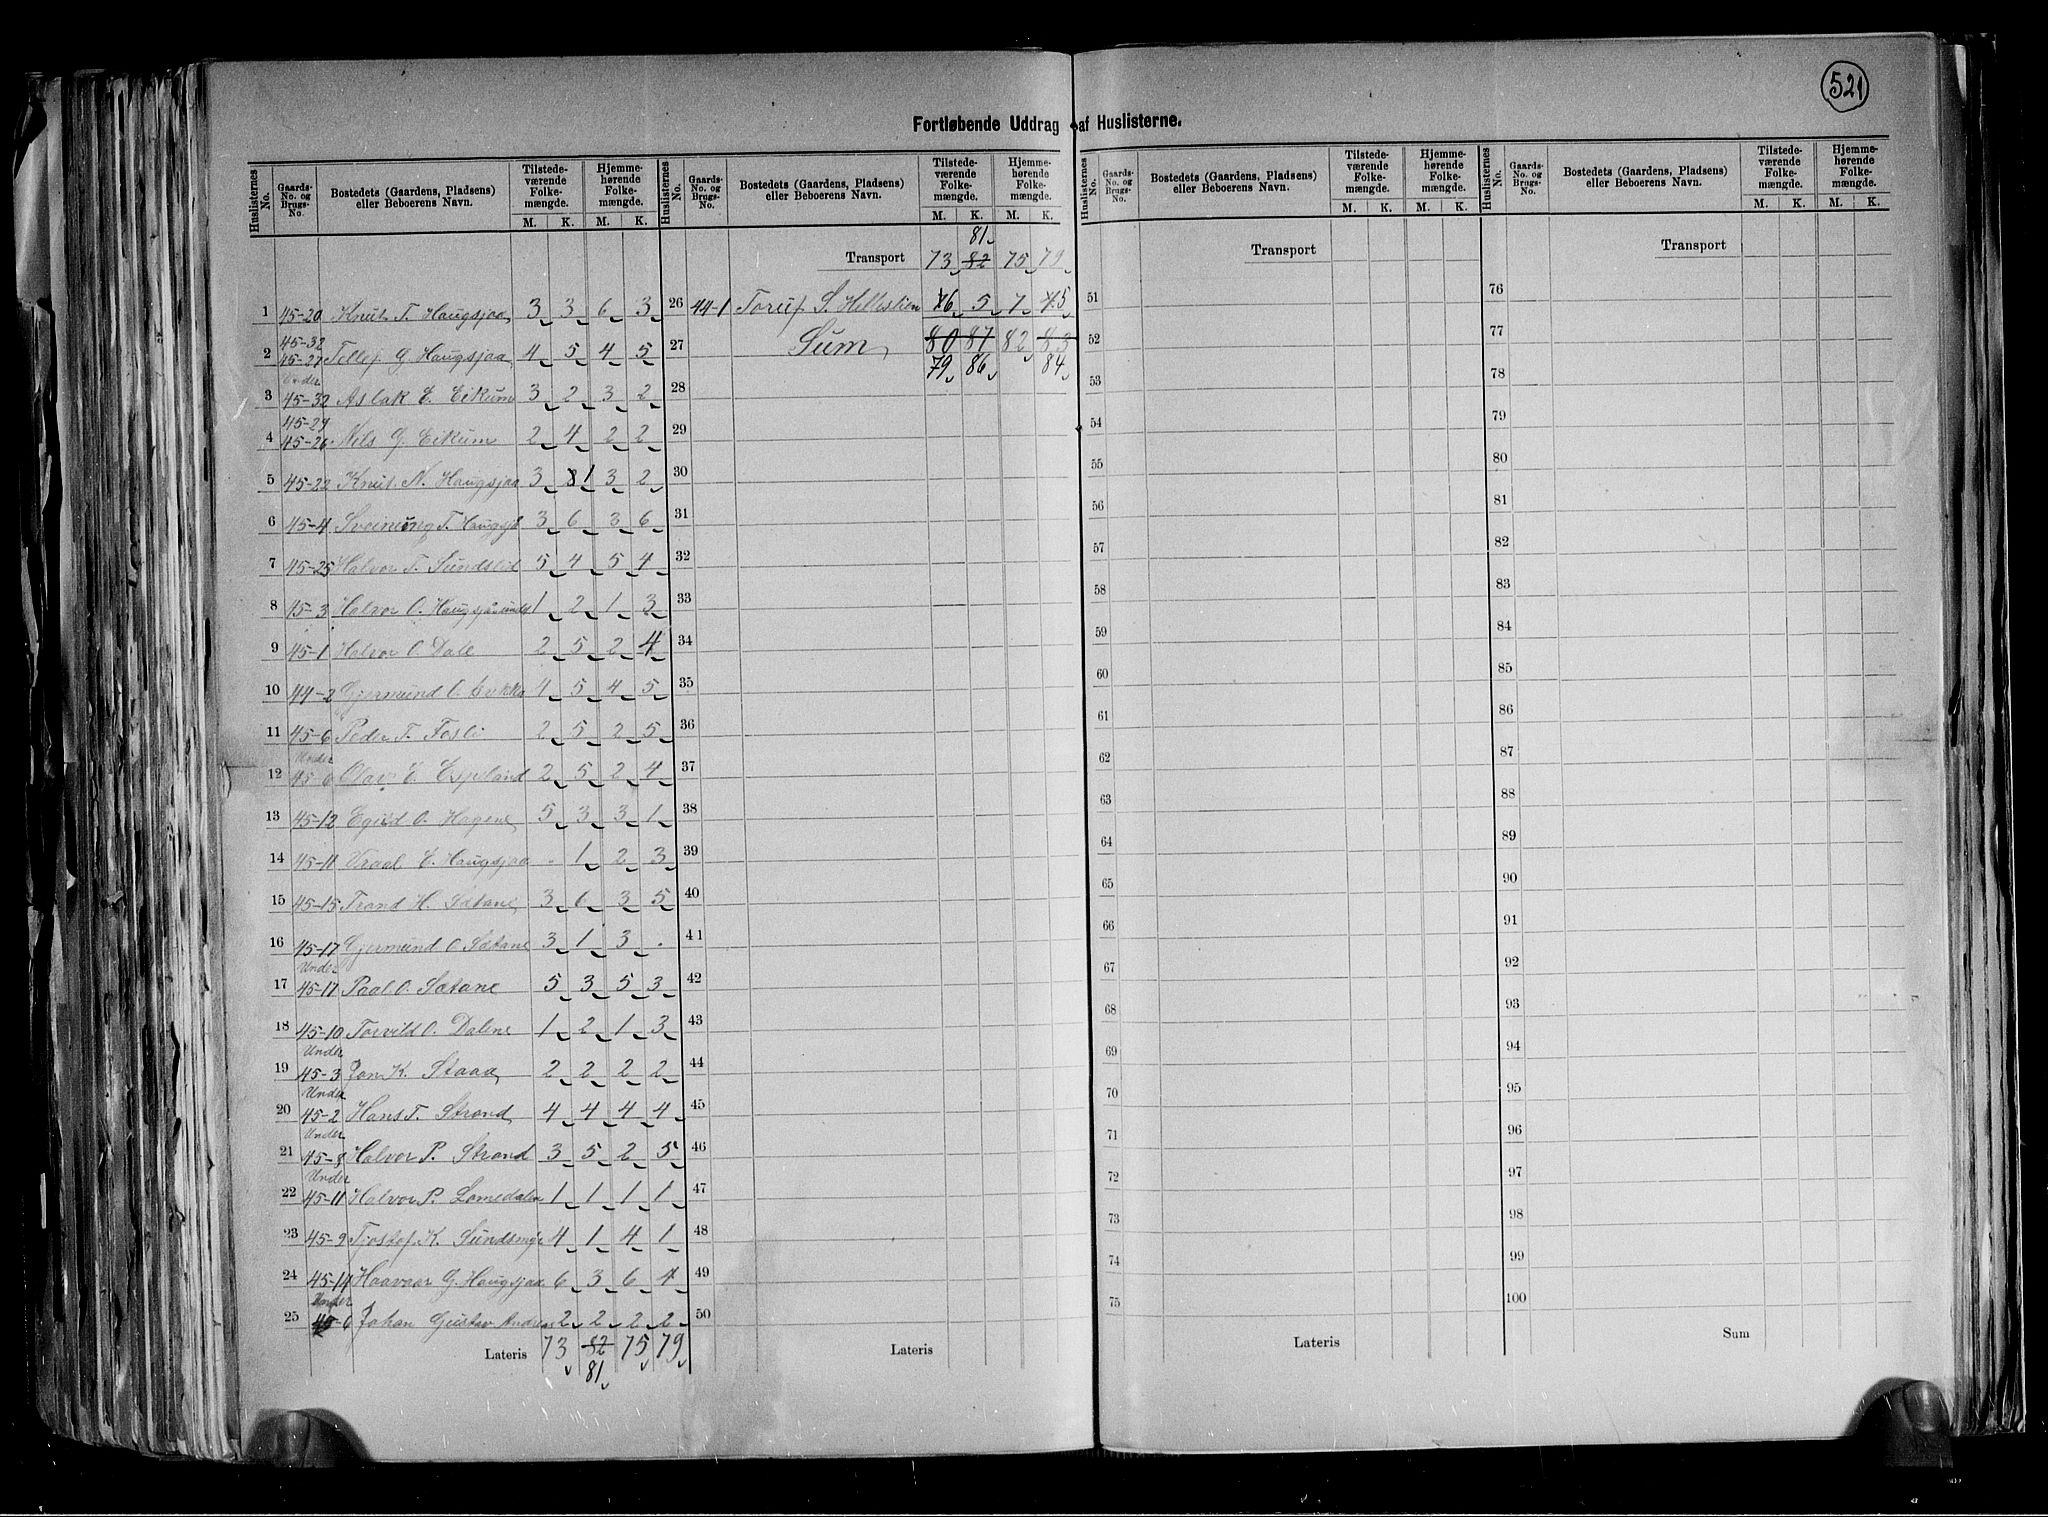 521
Fortløbende Uddrag af Huslisterne.
Huslisternes No. Gaards-No. og Brugs-No. Bostedets (Gaardens, Pladsens) eller Beboerens Navn. Tilstedeværende Folkemængde. M. K. Hjemmehørende Folkemængde. M. K.
1 45-20 Knut T. Haugsjaa 3 3 6 3
2 45-32 45-27 Tellef G. Haugsjaa 4 5 4 5
3 Under 45-32 Aslak E. Eikum 3 2 3 2
4 45-29 45-26 Nils G. Eikum 2 4 2 2
5 45-22 Knut N. Haugsjaa 3 1 3 2
6 45-4 Sveinung T. Haugsjå 3 6 3 6
7 45-25 Halvor T. Sundslid 5 4 5 4
8 45-3 Halvor O. 1 2 1 3
9 45-1 Halvor O. Dale 2 5 2 4
10 44-2 Gjermund O. 4 5 4 5
11 45-6 Peder T. Fosli 2 5 2 5
12 Under 45-6 Olav E. Espeland 2 5 2 4
13 45-12 Egild O. Hagene 5 3 3 1
14 45-11 Vraal E. Haugsjaa - 1 2 3
15 45-15 Trond H. Satane 3 6 3 5
16 45-17 Gjermund O. Satane 3 1 3 .
17 Under 45-17 Paal O. Satane 5 3 5 3
18 45-10 Torvild O. Dalene 1 2 1 3
19 Under 45-3 Jon K. Staaa 2 2 2 2
20 Under 45-2 Hans T. Strond 4 4 4 4
21 Under 45-8 Halvor P. Strond 3 5 2 5
22 Under 45-11 Halvor P. Lomedalen 1 1 1 1
23 45-9 Tjostof K. Sundsmyr 4 1 4 1
24 45-14 Haavaar G. Haugsjaa 6 3 6 4
25 Under 45-6 Johan Gustav Andreas 2 2 2 2
Lateris 73 82 75 79
81
Huslisternes No. Gaards-No. og Brugs-No. Bostedets (Gaardens, Pladsens) eller Beboerens Navn. Tilstedeværende Folkemængde. M. K. Hjemmehørende Folkemængde. M. K.
81
Transport 73 82 75 79
26 44-1 Toruf S. Hellestien 6 5 7 5
27 Sum 80 87 82 83
79 86 84
28
29
30
31
32
33
34
35
36
37
38
39
40
41
42
43
44
45
46
47
48
49
50
Lateris
Huslisternes No. Gaards-No. og Brugs-No. Bostedets (Gaardens, Pladsens) eller Beboerens Navn. Tilstedeværende Folkemængde. M. K. Hjemmehørende Folkemængde. M. K.
Transport
51
52
53
54
55
56
57
58
59
60
61
62
63
64
65
66
67
68
69
70
71
72
73
74
75
Lateris
Huslisternes No. Gaards-No. og Brugs-No. Bostedets (Gaardens, Pladsens) eller Beboerens Navn. Tilstedeværende Folkemængde. M. K. Hjemmehørende Folkemængde. M. K.
Transport
76
77
78
79
80
81
82
83
84
85
86
87
88
89
90
91
92
93
94
95
96
97
98
99
100
Sum